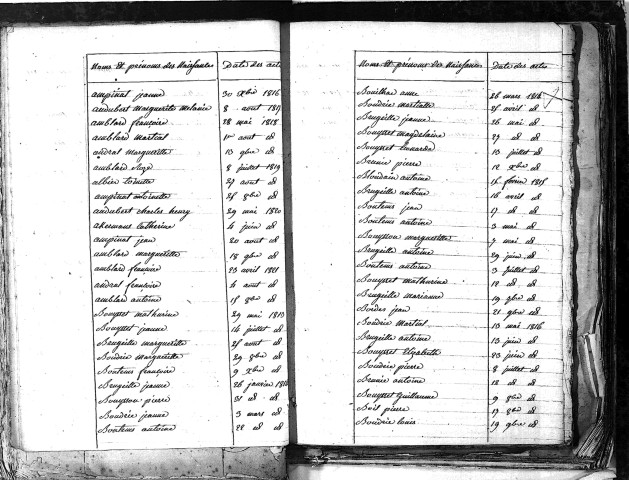 Noms Et prénoms des Naissantes Date des actes
ampinat jeanne 30 Xbre 1816
audubert marguerite melanie 8 aout 1817
amblard françoise 28 mai 1818
amblard martial 1er aout id
andral marguerite 13 9bre id
amblard 8 juillet 1819
albin toinette 27 aout id
ampinat antoinette 25 8bre id
audubert charles henry 29 mai 1820
akermans Catherine 4 juin id
ampinat jean 20 aout id
amblard marguerite 18 9bre id
amblard françoise 23 avril 1821
andral françoise 4 aout id
amblard antoine 15 8bre id
Bouysset mathurine 29 mai 1813
Bouysset jeanne 14 juillet id
Brugeille marguerite 25 aout id
Boudrie marguerite 29 8bre id
Bontems françoise 9 Xbre id
Brugeille jeanne 26 janvier
Bouyssou pierre 31 id
Boudrie jeanne 3 mars id
Bontems antoine 28 id id
Noms Et prénoms des Naissantes Date des actes
Bouilhac anne 26 mars 1814
Boudrie martiale 25 avril id
Brugeille jeanne 26 mai id
Bouysset magdelaine 27 id id
Bouysset Leonarde 13 juillet id
Brunie pierre 12 Xbre id
Bloudain antoine 15 fevrier 1815
Brugeille antoine 16 avril id
Bontems jean 17 id
Bontems antoine 3 mai id
Bouyssou marguerite 7 mai id
Brugeille antoine 29 juin id
Bontems antoine 3 juillet id
Bouysset mathurine 12 id id
Brugeille marianne 19 9bre id
Bordes jean 21 9bre id
Boudrie Martial 13 mai 1816
Brugeille antoine 13 juin id
Bouysset Elizabeth 23 juin id
Boudrie pierre 8 juillet id
Brunie antoine 12 id id
Bouysset Guillaume 9 8bre id
Boit pierre 17 8bre id
Boudrie louis 19 9bre id